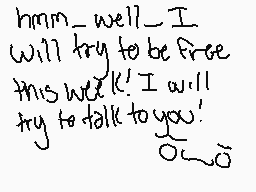 hmm_well_I
will try to be free
this week! I will
try to talk to you!